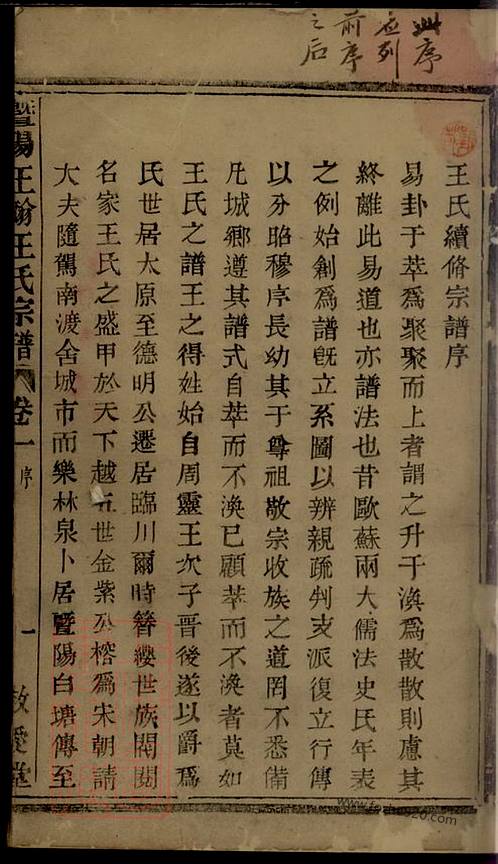 此序
应列
前序
之后
王氏續修宗譜序
易卦于萃為聚聚而上者謂之升于渙為散散則慮其
終離此易道也亦譜法也昔歐蘇兩大儒法史氏年表
之例始創為譜旣立系圖以辨親疏判支派復立行傳
以分昭穆序長幼其于尊祖敬宗收族之道罔不悉備
凡城鄉遵其譜式自萃而不渙已顧萃而不渙者莫如
王氏之譜王之得姓始自周靈王次子晉後遂以爵為
氏世居太原至德明公遷居臨川爾時簪纓世族閥閱
名家王氏之盛甲於天下越五世金紫公榕為宋朝請
大夫隨駕南渡舍城市而樂林泉卜居暨陽白塘傳至
暨陽王翰王氏宗譜 卷一 序 一 敦愛堂